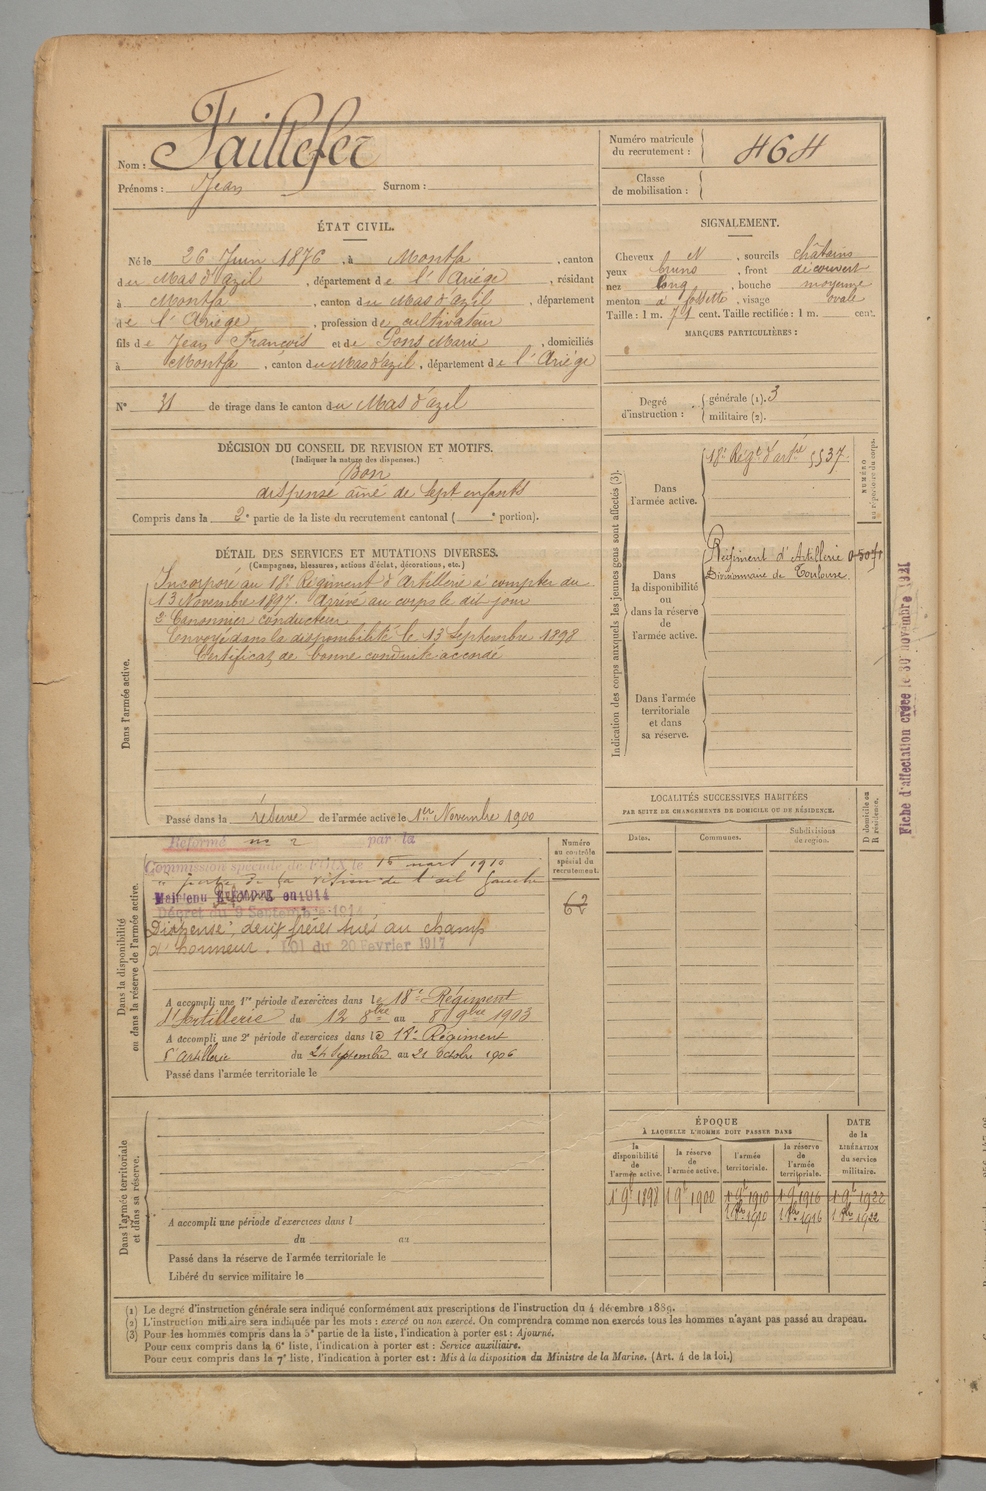 Nom : Taillefer
Prénoms : Jean Surnom :
Numéro matricule du recrutement : 464
Classe de mobilisation :
ÉTAT CIVIL.
Né le 26 Juin 1876, à Montfa, canton
du Mas d'azil, département de l'Ariège, résidant
à Montfa, canton du Mas d'azil, département
de l'Ariège, profession de cultivateur
fils de Jean François et de Pons Marie, domiciliés
à Montfa, canton du Mas d'azil, département de l'Ariège
N° 31 de tirage dans le canton du Mas d'azil
SIGNALEMENT.
Cheveux N, sourcils châtains
yeux bruns, front découvert
nez long, bouche moyenne
menton à fossette, visage ovale
Taille : 1 m. 71 cent. Taille rectifiée : 1 m. cent.
MARQUES PARTICULIÈRES :
Degré d'instruction : générale (1). 3
militaire (2).
DÉCISION DU CONSEIL DE REVISION ET MOTIFS.
(Indiquer la nature des dispenses.)
Bon
dispensé aîné de sept enfants
Compris dans la 2e partie de la liste du recrutement cantonal ( e portion).
DÉTAIL DES SERVICES ET MUTATIONS DIVERSES.
(Campagnes, blessures, actions d'éclat, décorations, etc.)
Dans l'armée active.
Incorporé au 18e Régiment d'Artillerie à compter du
13 Novembre 1897. Arrivé au corps le dit jour
2e Canonnier conducteur
Envoyé dans la disponibilité le 13 Septembre 1898
Certificat de bonne conduite accordé
Passé dans la réserve de l'armée active le 1er Novembre 1900
Indication des corps auxquels les jeunes gens sont affectés (3).
NUMÉRO au répertoire du corps.
Dans l'armée active.
18e Régt d'artie 5537
Dans la disponibilité ou dans la réserve de l'armée active.
Régiment d'Artillerie
Divisionnaire de Toulouse.
Dans l'armée territoriale et dans sa réserve.
Fiche d'affectation créée le 30 novembre 1921
LOCALITÉS SUCCESSIVES HABITÉES
PAR SUITE DE CHANGEMENTS DE DOMICILE OU DE RÉSIDENCE.
Dates. Communes. Subdivisions de région. D domicile ou R résidence.
Dans la disponibilité ou dans la réserve de l'armée active.
Numéro au contrôle spécial du recrutement.
62
Réformé n° 2 par la
Commission spéciale de FOIX le 15 mars 1910
perte de la vision de l'œil gauche
Maintenu EXEMPTÉ en 1914
Décret du 9 Septembre 1914
Dispensé, deux frères tués au champ
d'honneur. LOI du 20 Février 1917
A accompli une 1re période d'exercices dans le 18e Régiment
d'Artillerie du 12 8bre au 8 9bre 1903
A accompli une 2e période d'exercices dans le 18e Régiment
d'artillerie du 24 Septembre au 21 Octobre 1906
Passé dans l'armée territoriale le
Dans l'armée territoriale et dans sa réserve.
A accompli une période d'exercices dans l
du au
Passé dans la réserve de l'armée territoriale le
Libéré du service militaire le
ÉPOQUE
À LAQUELLE L'HOMME DOIT PASSER DANS
DATE de la LIBÉRATION du service militaire.
la disponibilité de l'armée active. la réserve de l'armée active. l'armée territoriale. la réserve de l'armée territoriale.
1 9bre 1898 1 9bre 1900 1 9bre 1910 1 9bre 1916 1 9bre 1922
1910 1916 1922
(1) Le degré d'instruction générale sera indiqué conformément aux prescriptions de l'instruction du 4 décembre 1889.
(2) L'instruction militaire sera indiquée par les mots : exercé ou non exercé. On comprendra comme non exercés tous les hommes n'ayant pas passé au drapeau.
(3) Pour les hommes compris dans la 5e partie de la liste, l'indication à porter est : Ajourné.
Pour ceux compris dans la 6e liste, l'indication à porter est : Service auxiliaire.
Pour ceux compris dans la 7e liste, l'indication à porter est : Mis à la disposition du Ministre de la Marine. (Art. 4 de la loi.)